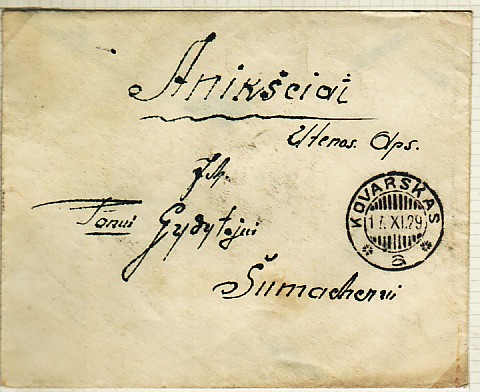 Anikščiai
Utenos. Aps.
Jh.
Ponui Gydytojui
Šumacherui
KOVARSKAS
17. XI. 29
a